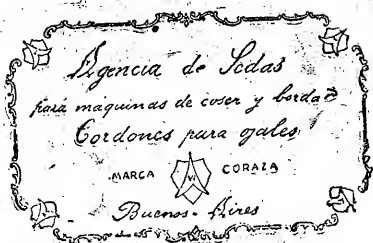 Agencia de Sedas
para maquinas de coser y bordar
Cordones para ojales
MARCA CORAZA
Buenos-Aires